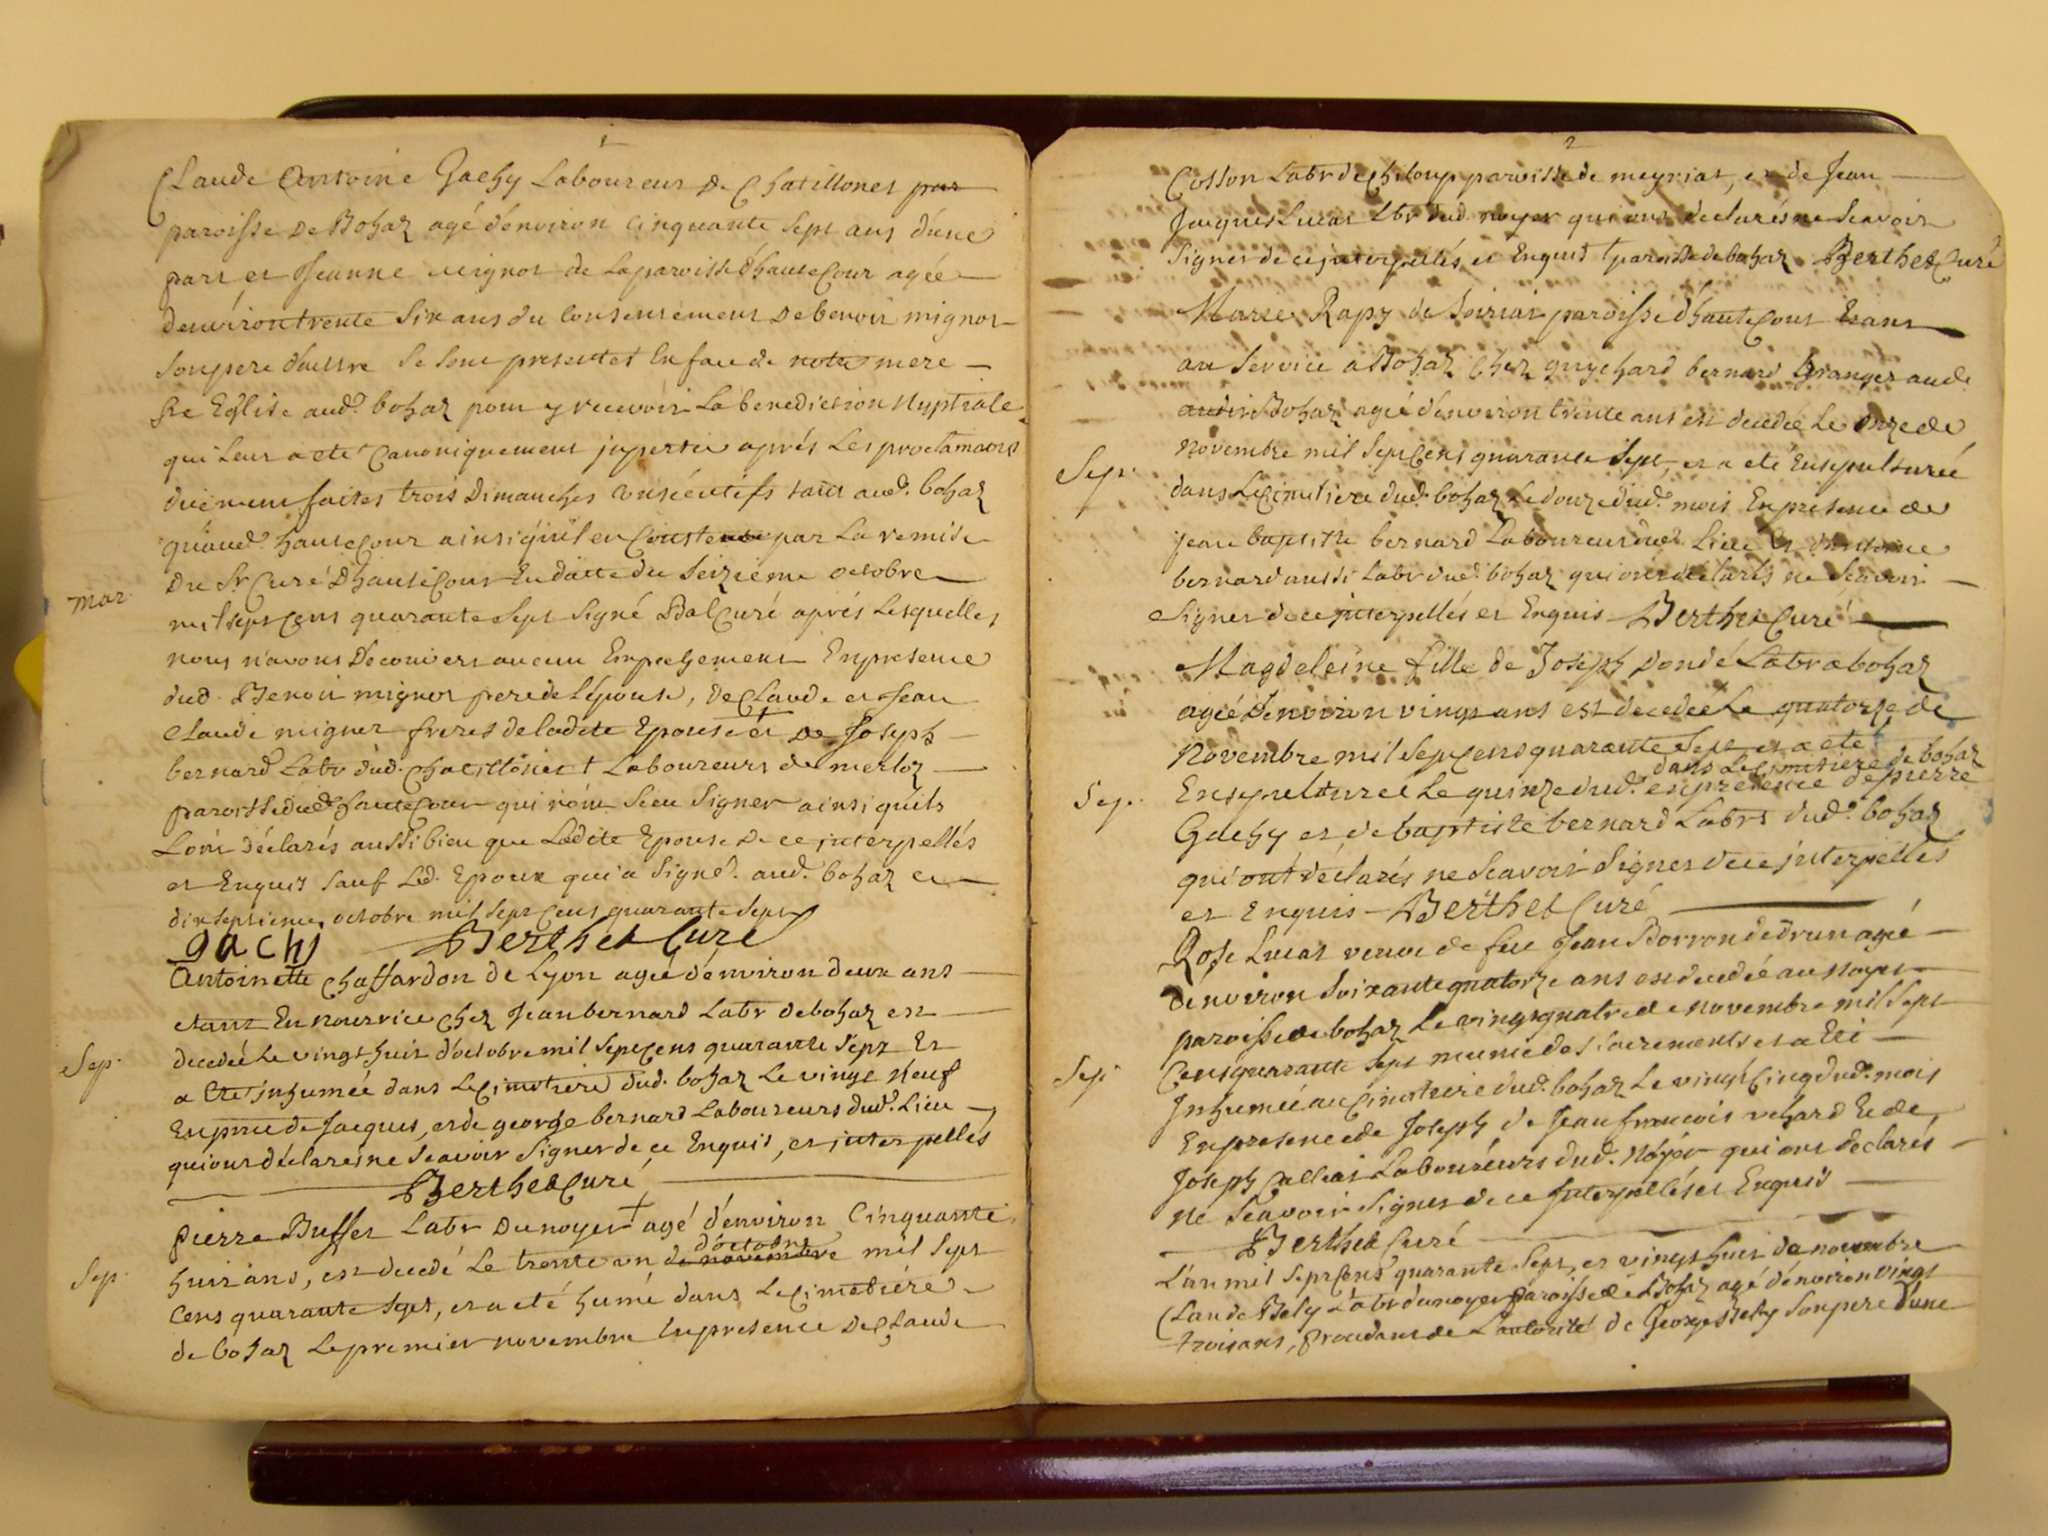 1
Claude Antoine Gachy Laboureur de Chatillonet par
paroisse de Bohaz agé d'environ cinquante sept ans d'une
part et Jeanne mignot de la paroisse d'hautecour agée
d'environ trente six ans du consentement de benoit mignot
son pere d'autre se sont presentet en face de notre mere
Ste Eglise aud. bohaz pour y recevoir la benediction Nuptiale
qui leur a eté Canoniquement jmpartie aprés les proclamaons
duement faites trois Dimanches consécutifs tant aud. bohaz
qu'aud. hautecour ainsi qu'il en Conste par la remise
mar.
du Sr Curé d'hautecour en datte du seizieme octobre
mil sept cens quarante sept signé Bal Curé aprés lesquelles
nous n'avons découvert aucun Empechement En presence
dud. Benoit mignot pere de l'épouse, de Claude et Jean
Claude mignot freres de ladite Epouse et de Joseph
bernard Labr dud. Chatillonet t Laboureurs de merloz
paroisse dud. hautecour qui n'ont sceu signer ainsi qu'ils
l'ont déclarés aussi bien que Ladite Epouse de ce interpellés
et Enquis sauf Led. Epoux qui a signé. aud. bohaz ce
dix septieme octobre mil sept cens quarante sept
gachi Berthet Curé
Antoinette Chaffardon de Lyon agée d'environ deux ans
etant En nourrice chez Jean bernard Labr de bohaz est
Sep.
decedée le vingt huit d'octobre mil sept cens quarante sept Et
a eté jnhumée dans le cimetiere dud. bohaz le vingt neuf
En pnce de Jacques, et de george bernard Laboureurs dud. Lieu
qui ont déclarés ne sçavoir signer de ce Enquis, et interpellés
Berthet Curé
Pierre Buffet Labr du noyer + agé d'environ Cinquante
d'octobre
Sep.
huit ans, est decedé le trente un de novembre mil sept
cens quarante sept, et a eté humé dans le cimetiére
de bohaz le premier novembre En presence de Claude
2
Cosson Labr de Chiloup paroisse de meyriat, et de Jean
Jacques Lucat Lbr dud. noyer qui ont declarés ne sçavoir
signer de ce interpellés et Enquis t paroisse de bohaz Berthet Curé
Marie Rapy de Soiriat paroisse d'hautecour Etant
au service a Bohaz chez guychard bernard Granger aud.
Bohaz agée d'environ trente ans est decedée le onze de
Sep.
novembre mil sept cens quarante sept, et a eté Ensepulturée
dans le cimetiere dud. bohaz le douze dud. mois En presence de
jean baptiste bernard Laboureur dud. Lieu et d'antoine
bernard aussi Labr dud. bohaz qui ont déclarés ne sçavoir
signer de ce interpellés et Enquis Berthet Curé
Magdeleine fille de Joseph Dondé Labr a bohaz
agée d'environ vingt ans est decedée le quatorze de
Novembre mil sept cens quarante sept et a eté
dans le cimetiere de bohaz
Sep.
Ensepulturée le quinze dud. en presence de pierre
Gachy et de baptiste bernard Labrs dud. bohaz
qui ont déclarés ne sçavoir signer de ce jnterpellés
et Enquis - Berthet Curé
Rose Lucat veuve de feu Jean Borron de Drun agée
d'environ soixante quatorze ans est decedée au noyer
paroisse de bohaz le vingt quatre de novembre mil sept
Sep.
Cens quarante sept munie des sacrements et a eté
Jnhumée au cimetiere dud. bohaz le vingt cinq dud. mois
En presence de Joseph de Jean francois vehard Et de
Joseph Calliat Laboureurs dud. Noyer qui ont declarés
ne sçavoir signer de ce Jnterpellés et Enquis
Berthet Curé
L'an mil sept cens quarante sept, et vingt huit de novembre
Claude Bely Labr du noyer paroisse de Bohaz agé d'environ vingt
trois ans, procedant de L'autorité de George Bely son pere d'une